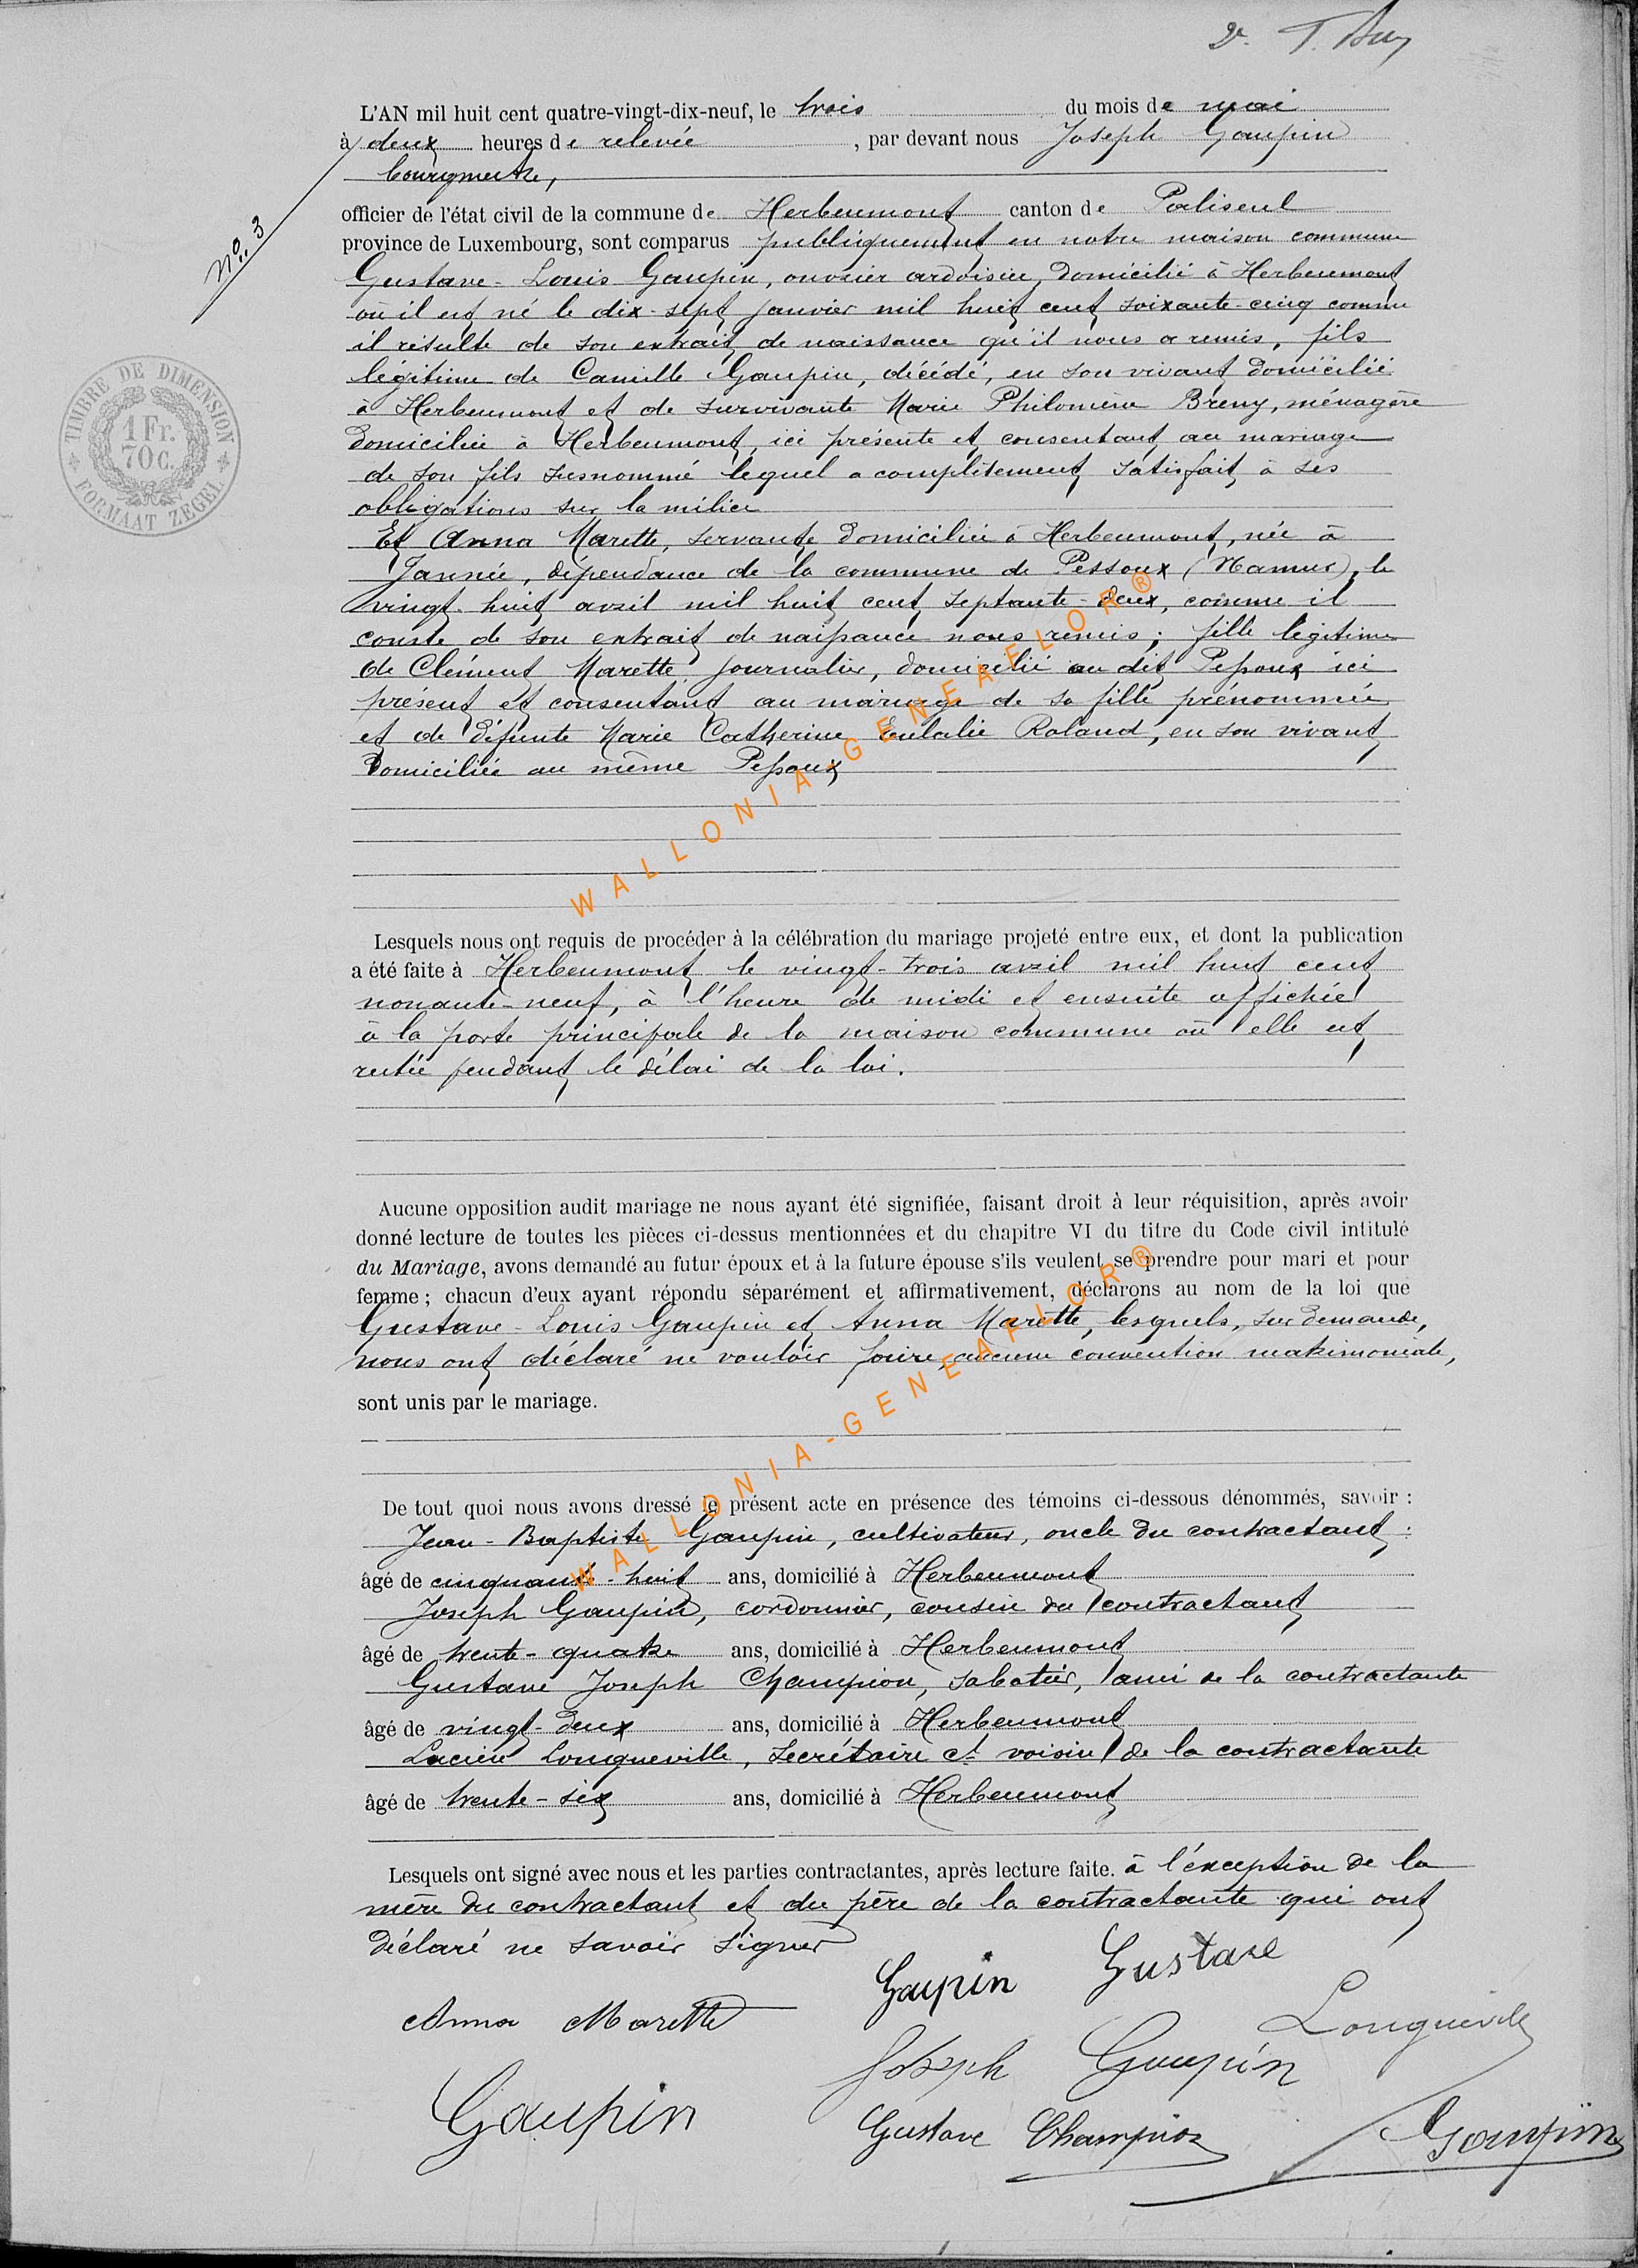 L'AN mil huit cent quatre-vingt-dix-neuf, le trois du mois de mai
à deux heures de relevée, par devant nous Joseph Gaupin
bourgmestre,
N° 3
officier de l'état civil de la commune de Herbeumont canton de Paliseul
province de Luxembourg, sont comparus publiquement en notre maison commune
Gustave-Louis Gaupin, ouvrier ardoisier, domicilié à Herbeumont
où il est né le dix-sept janvier mil huit cent soixante-cinq comme
il résulte de son extrait de naissance qu'il nous a remis, fils
légitime de Camille Gaupin, décédé, en son vivant domicilié
à Herbeumont et de survivante Marie Philomène Breny, ménagère
domiciliée à Herbeumont, ici présente et consentant au mariage
de son fils susnommé lequel a complètement satisfait à ses
obligations sur la milice
Et Anna Marette, servante domiciliée à Herbeumont, née à
Jannée, dépendance de la commune de Pessoux (Namur), le
vingt-huit avril mil huit cent septante-deux, comme il
conste de son extrait de naissance nous remis ; fille légitime
de Clément Marette, journalier, domicilié au dit Pessoux ici
présent et consentant au mariage de sa fille prénommée
et de défunte Marie Catherine Eulalie Roland, en son vivant
domiciliée au même Pessoux
TIMBRE DE DIMENSION
1 Fr.
70 C.
FORMAAT ZEGEL
WALLONIA-GENEAFLOR®
Lesquels nous ont requis de procéder à la célébration du mariage projeté entre eux, et dont la publication
a été faite à Herbeumont le vingt-trois avril mil huit cent
nonante-neuf, à l'heure de midi et ensuite affichée
à la porte principale de la maison commune où elle est
restée pendant le délai de la loi.
Aucune opposition audit mariage ne nous ayant été signifiée, faisant droit à leur réquisition, après avoir
donné lecture de toutes les pièces ci-dessus mentionnées et du chapitre VI du titre du Code civil intitulé
du Mariage, avons demandé au futur époux et à la future épouse s'ils veulent se prendre pour mari et pour
femme ; chacun d'eux ayant répondu séparément et affirmativement, déclarons au nom de la loi que
Gustave-Louis Gaupin et Anna Marette, lesquels, sur demande,
nous ont déclaré ne vouloir faire aucune convention matrimoniale,
sont unis par le mariage.
WALLONIA-GENEAFLOR®
De tout quoi nous avons dressé le présent acte en présence des témoins ci-dessous dénommés, savoir :
Jean-Baptiste Gaupin, cultivateur, oncle du contractant
âgé de cinquante-huit ans, domicilié à Herbeumont
Joseph Gaupin, cordonnier, cousin du contractant
âgé de trente-quatre ans, domicilié à Herbeumont
Gustave Joseph Champion, sabotier, ami de la contractante
âgé de vingt-deux ans, domicilié à Herbeumont
Lucien Longueville, secrétaire ct voisin de la contractante
âgé de trente-six ans, domicilié à Herbeumont
Lesquels ont signé avec nous et les parties contractantes, après lecture faite. à l'exception de la
mère du contractant et du père de la contractante qui ont
déclaré ne savoir signer
Gaupin Gustave
Anna Marette
Longueville
Joseph Gaupin
Gaupin
Gustave Champion
Gaupin